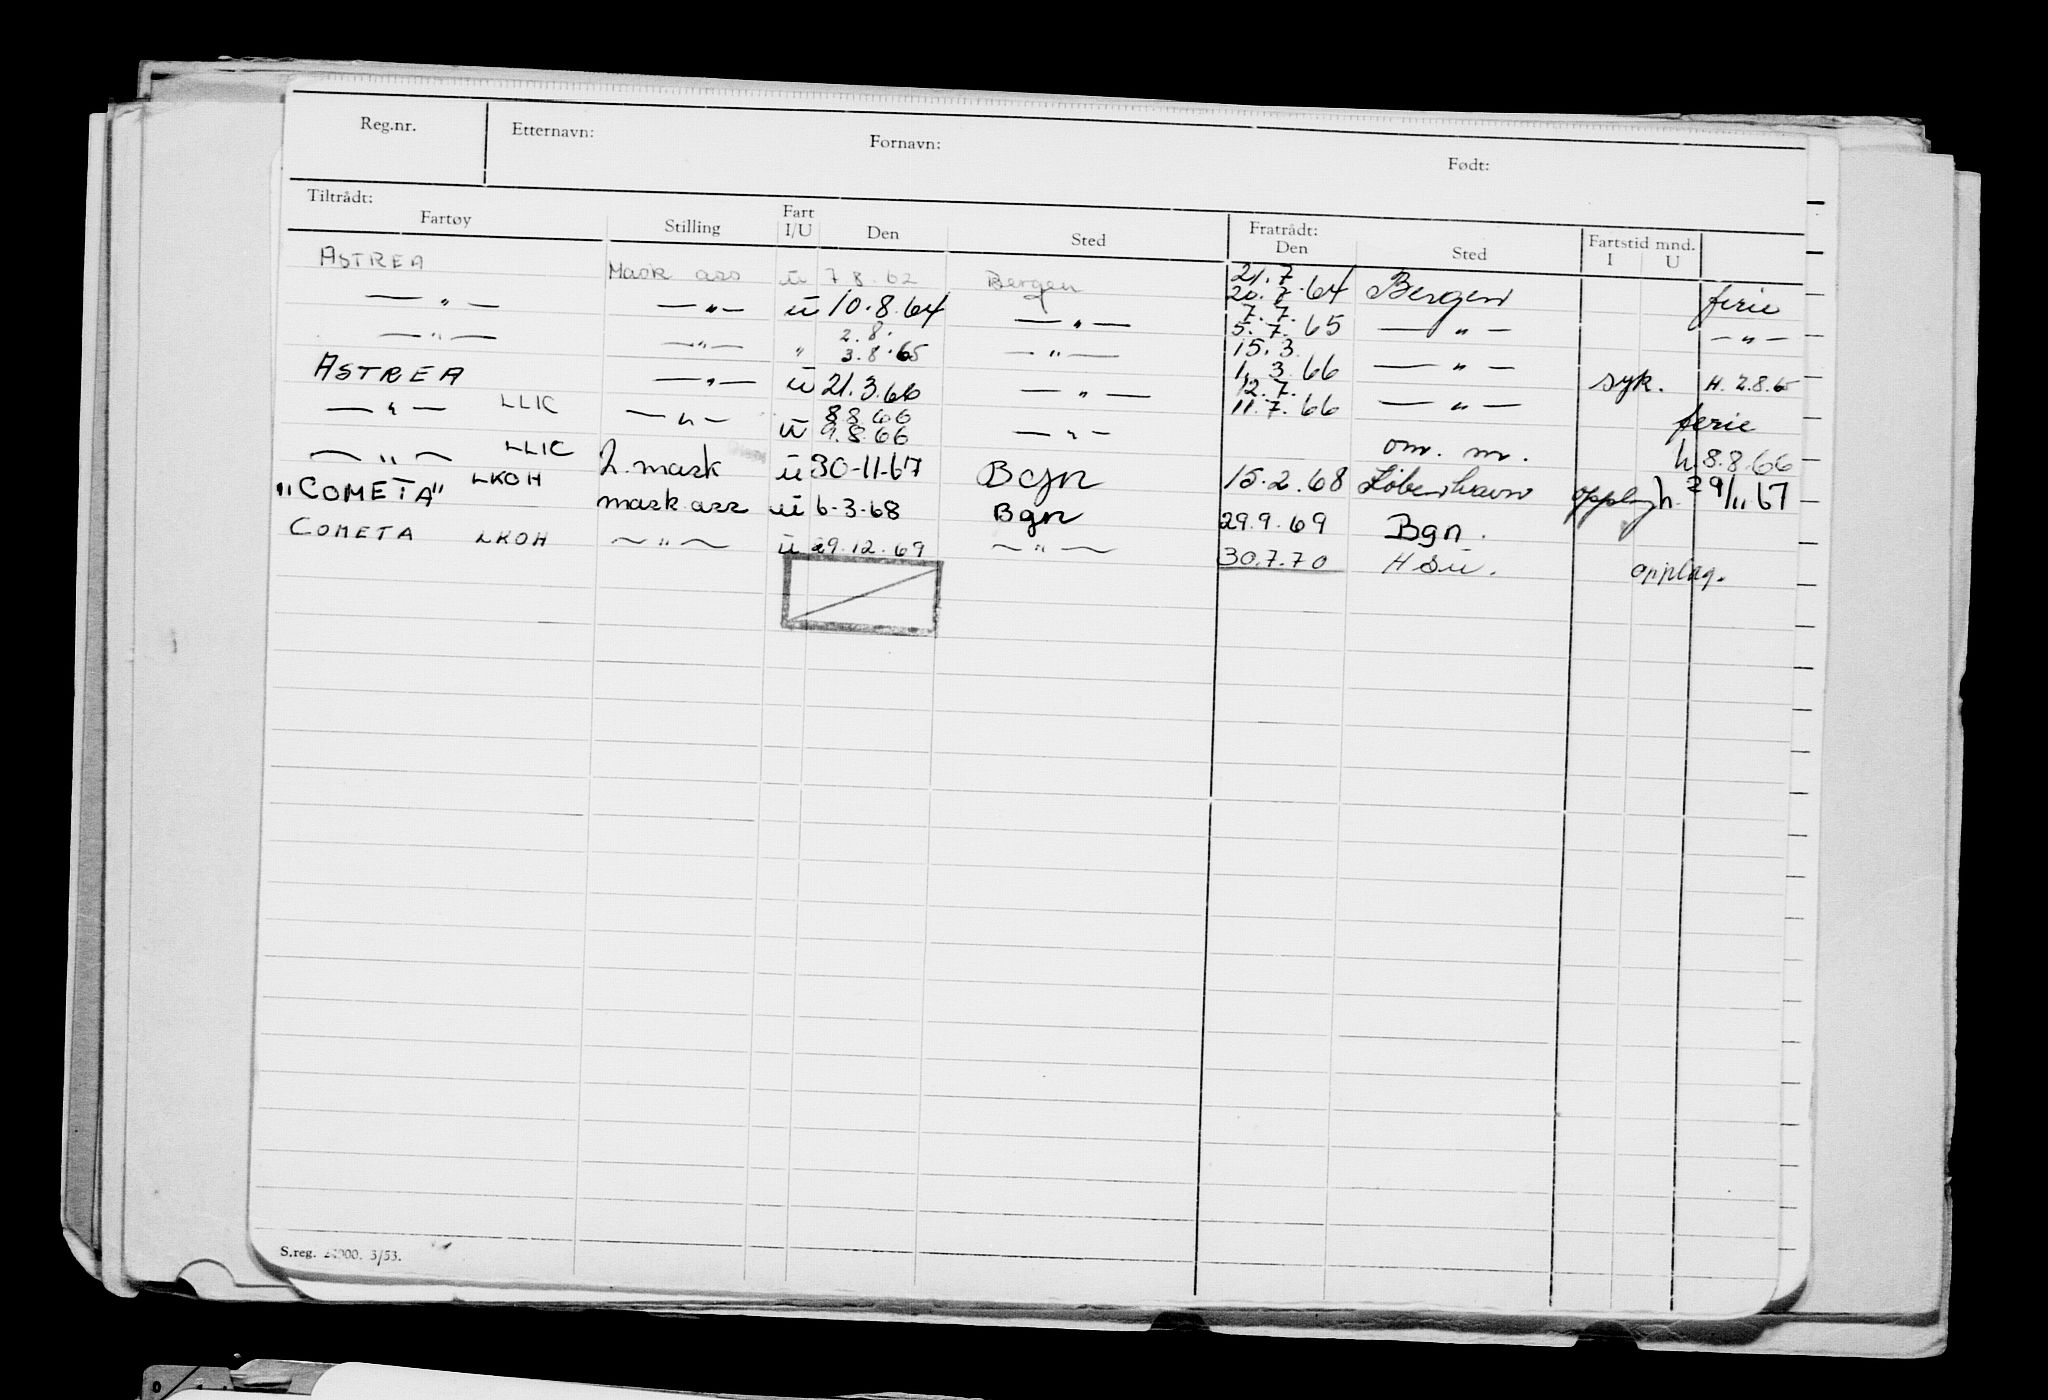 Reg.nr. Etternavn: Fornavn: Født:
Tiltrådt: Fratrådt: Fartstid mnd.
Fartøy Stilling Fart I/U Den Sted Den Sted I U
ASTREA Mask ass u 7.8.62 Bergen 21.7 20.7.64 Bergen ferie
— " — — " — u 10.8.64 — " — 7.7. 5.7.65 — " — — " —
— " — — " — " 2.8. 3.8.65 — " — 15.3. 1.3.66 — " — syk. H. 2.8.65
ASTREA — " — u 21.3.66 — " — 12.7. 11.7.66 — " — ferie
— " — LLIC — " — u 8.8.66 9.8.66 — " — om. m. h. 8.8.66
— " — LLIC 2. mask u 30-11-67 Bgn 15.2.68 København opplag h. 29/11 67
"COMETA" LKOH mask. ass u 6-3-68 Bgn 29.9.69 Bgn.
COMETA LKOH — " — u 29.12.69 — " — 30.7.70 opplag.
S.reg. 3/53.